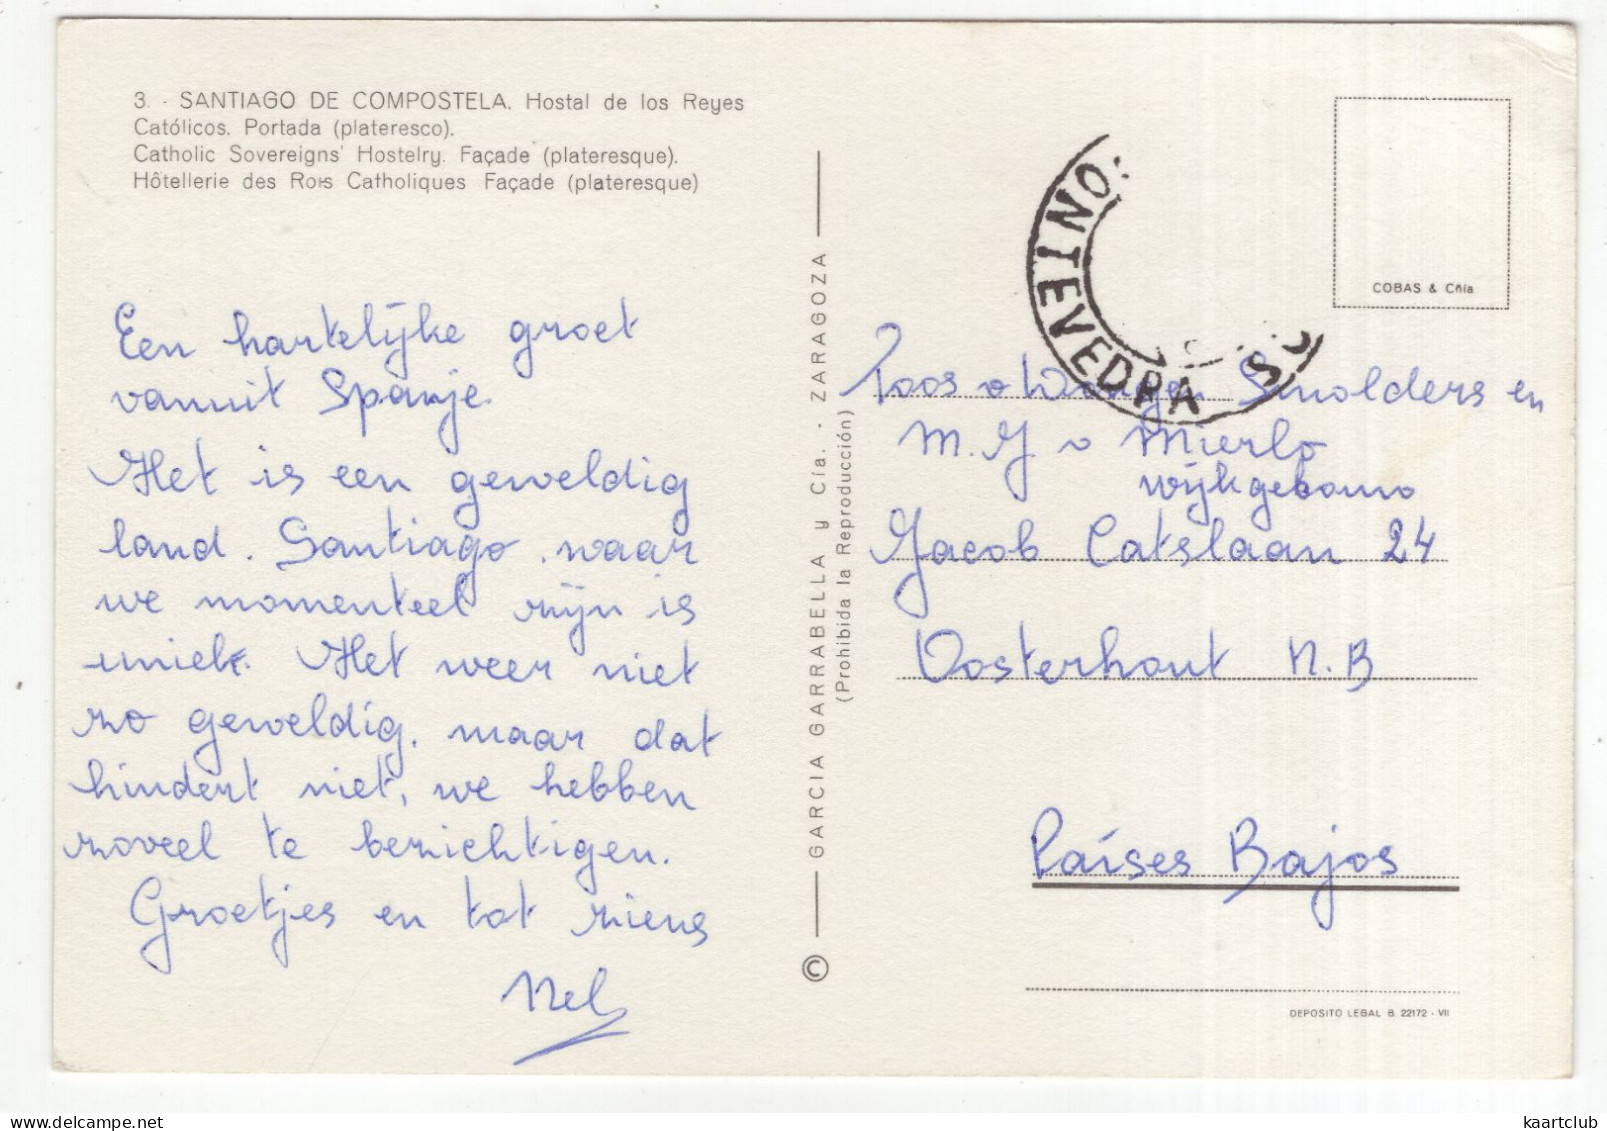 3. - SANTIAGO DE COMPOSTELA. Hostal de los Reyes
Católicos. Portada (plateresco).
Catholic Sovereigns' Hostelry. Façade (plateresque).
Hôtellerie des Rois Catholiques Façade (plateresque)
Een hartelijke groet
vanuit Spanje.
Het is een geweldig
land. Santiago, waar
we momenteel zijn is
uniek. Het weer niet
zo geweldig, maar dat
hindert niet, we hebben
zoveel te bezichtigen.
Groetjes en tot ziens
Nel
GARCIA GARRABELLA y Cía. - ZARAGOZA
(Prohibida la Reproducción)
©
ONTEVEDRA
COBAS & Cñía
Toos v Smolders en
M.J v Mierlo
wijkgebouw
Jacob Catslaan 24
Oosterhout N.B
Países Bajos
DEPOSITO LEGAL B. 22172 - VII
kaartclub